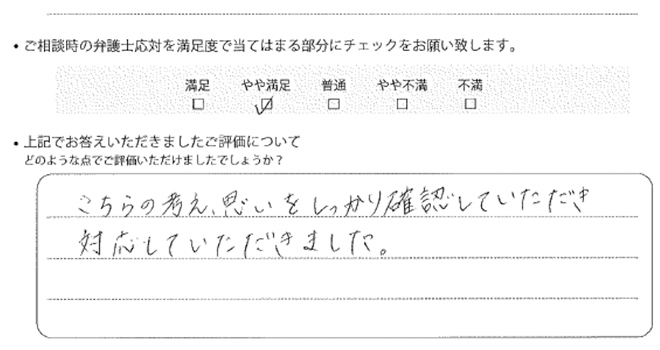 ・ご相談時の弁護士応対を満足度で当てはまる部分にチェックをお願い致します。
満足 やや満足 普通 やや不満 不満
□ ☑ □ □ □
・上記でお答えいただきましたご評価について
どのような点でご評価いただけましたでしょうか？
こちらの考え、思いをしっかり確認していただき
対応していただきました。